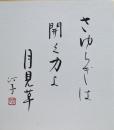 さゆらぎは
開く力よ
月見草
汀子